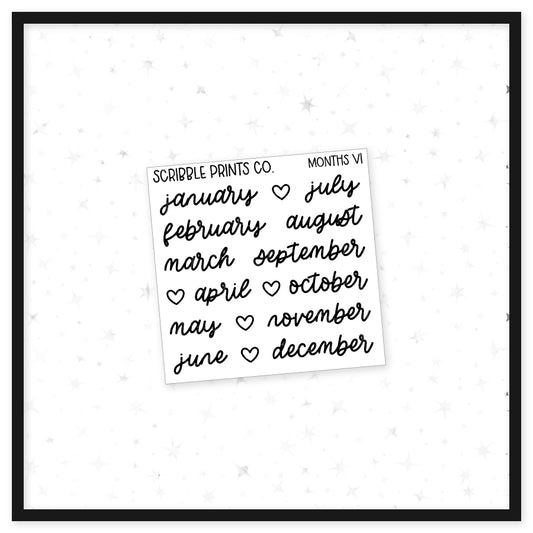 SCRIBBLE PRINTS CO. MONTHS V1
january ♡ july
february august
march september
♡ april ♡ october
may ♡ november
june ♡ december